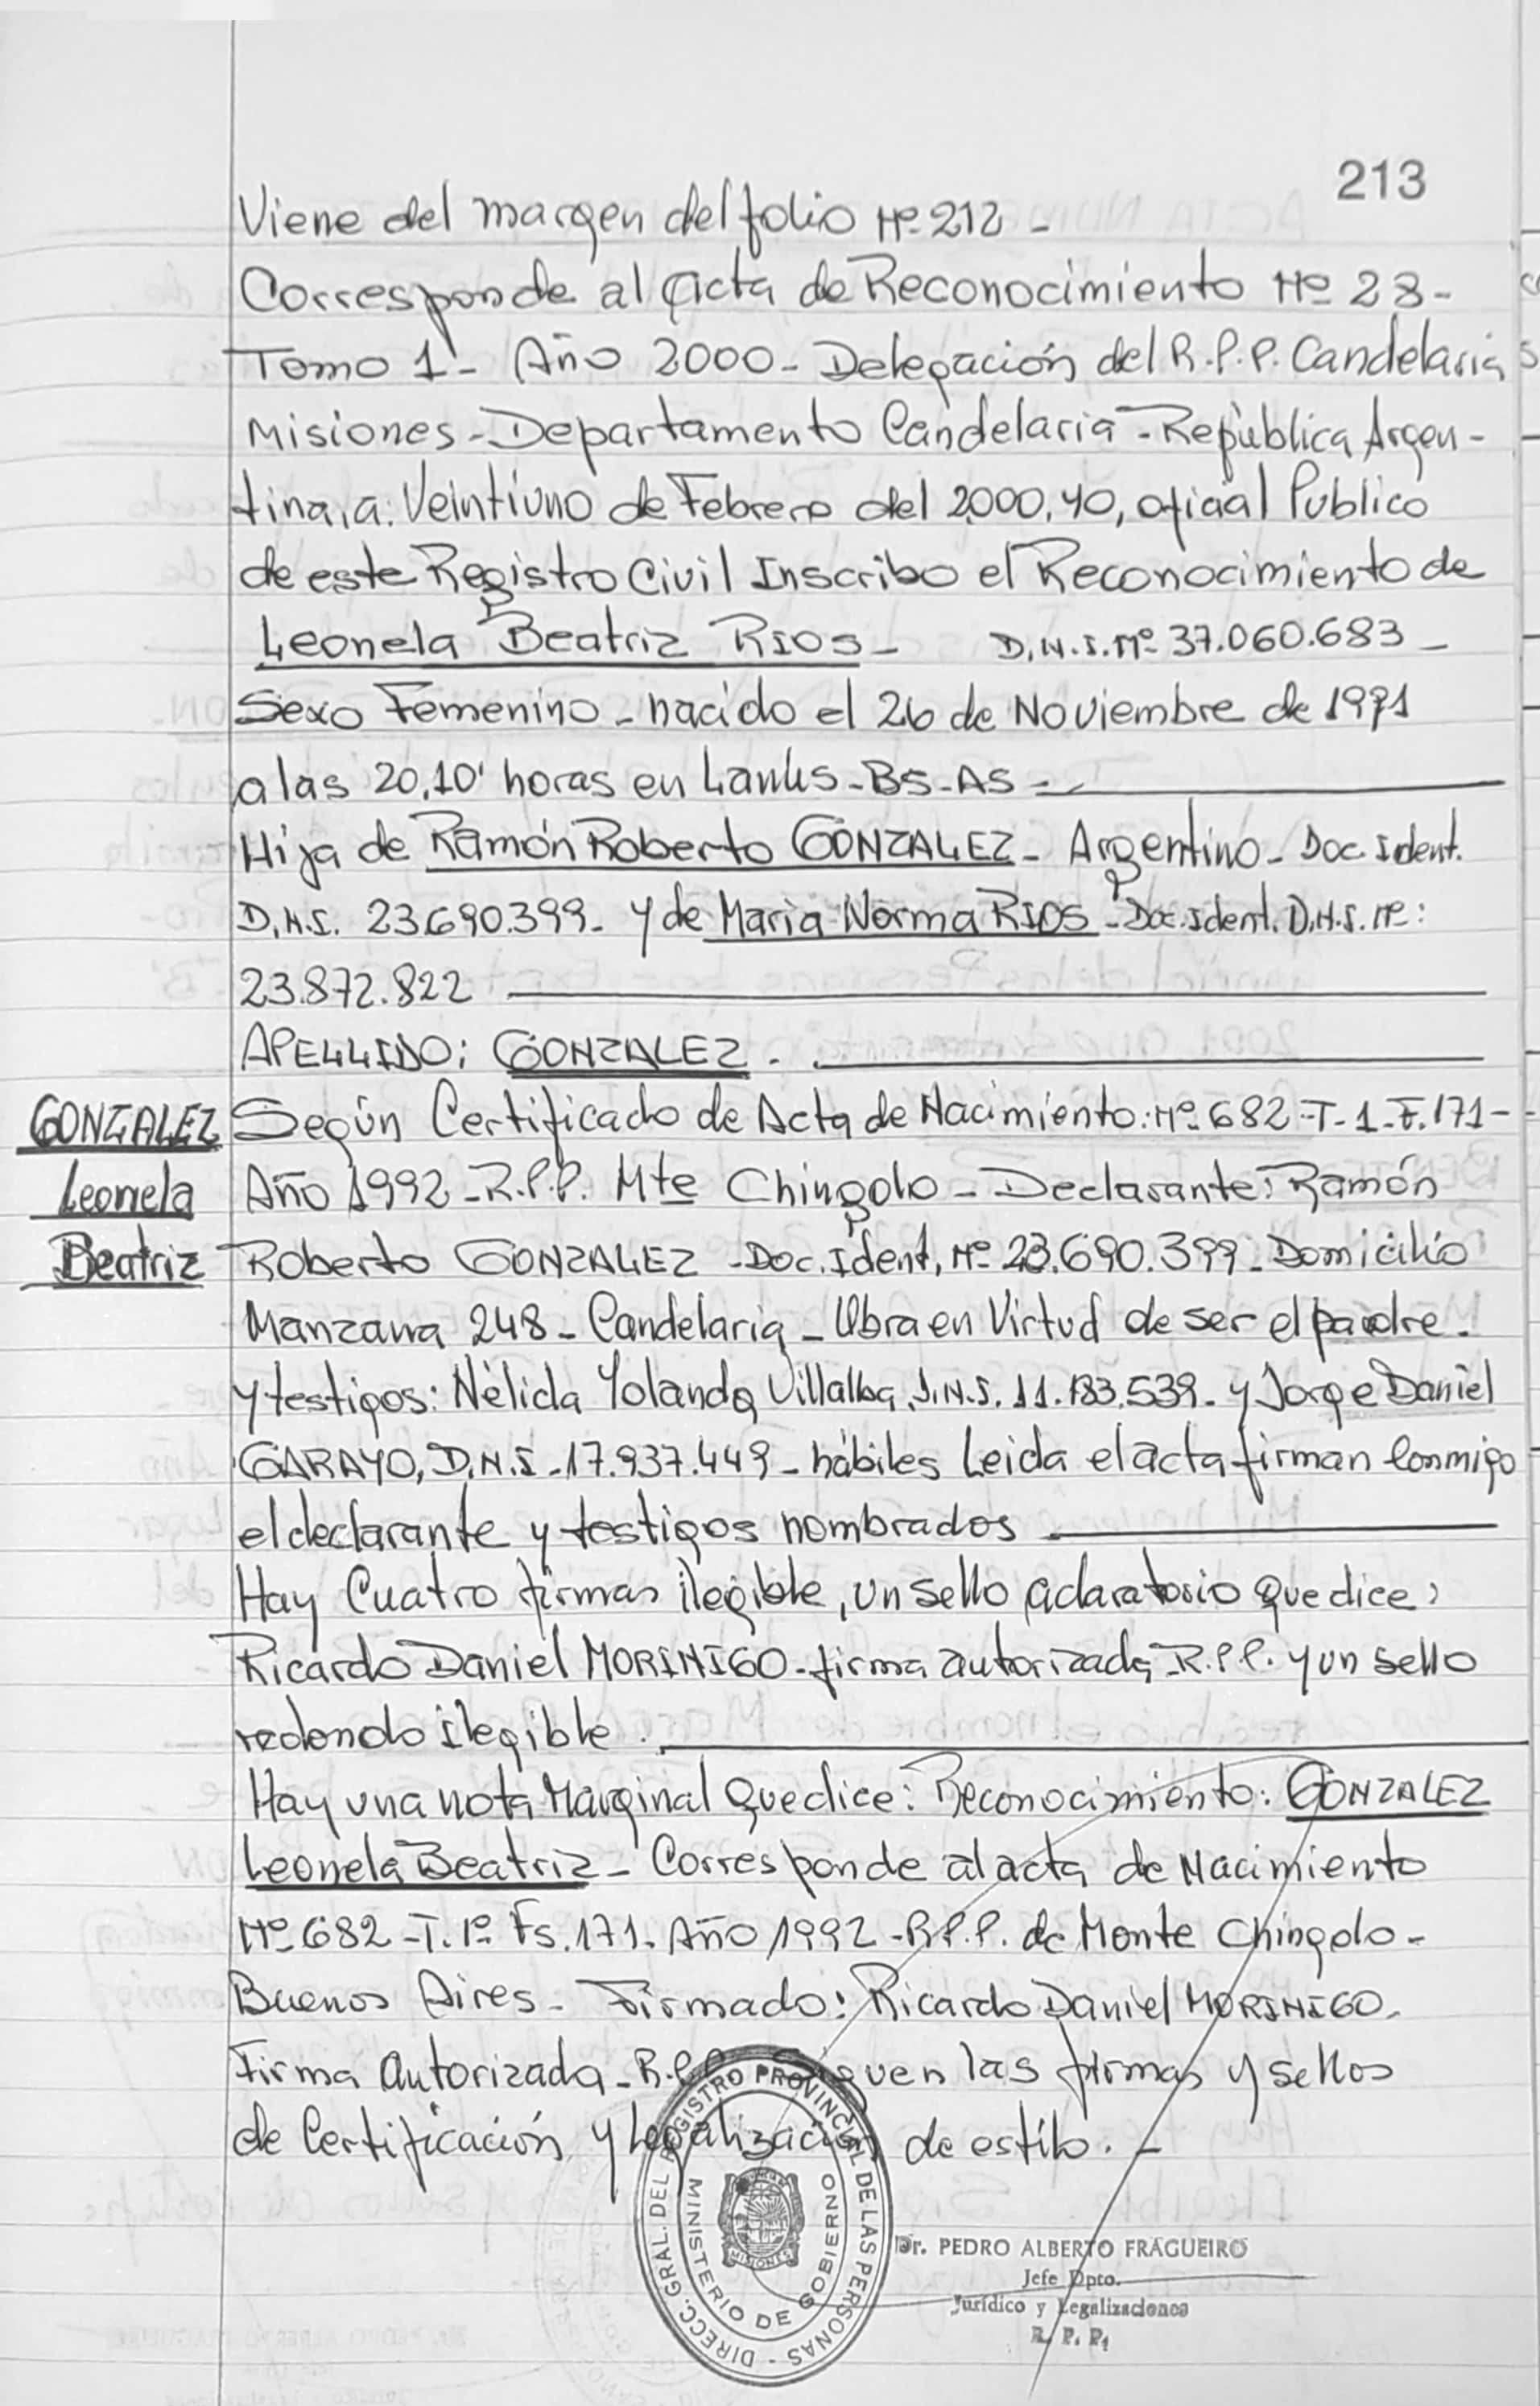 213
Viene del margen del folio Nº 212 -
Corresponde al acta de Reconocimiento Nº 28 -
Tomo 1 - Año 2000 - Delegación del R.P.P. Candelaria
Misiones - Departamento Candelaria - República Argen-
tina, a: Veintiuno de Febrero del 2000, yo, oficial Publico
de este Registro Civil Inscribo el Reconocimiento de
Leonela Beatriz RIOS - D.N.I. Nº 37.060.683 -
Sexo Femenino - nacido el 26 de Noviembre de 1991
a las 20,10' horas en Lanús - BS - AS -
Hija de Ramón Roberto GONZALEZ - Argentino - Doc. Ident.
D.N.I. 23.690.399 - y de María Norma RIOS - Doc. Ident. D.N.I. Nº:
23.872.822
APELLIDO: GONZALEZ -
GONZALEZ
Leonela
Beatriz
Según Certificado de Acta de Nacimiento: Nº 682 - T - 1 - F. 171 -
Año 1992 - R.P.P. Mte Chingolo - Declarante: Ramón
Roberto GONZALEZ - Doc. Ident, Nº 23.690.399 - Domicilio
Manzana 248 - Candelaria - Obra en Virtud de ser el padre -
y testigos: Nélida Yolanda Villalba, D.N.I. 11.183.539 - y Jorge Daniel
GARAYO, D.N.I - 17.937.449 - hábiles Leida el acta firman Conmigo
el declarante y testigos nombrados
Hay Cuatro firmas ilegible, un sello aclaratorio que dice:
Ricardo Daniel MORINIGO - firma autorizada - R.P.P. y un sello
redondo ilegible.
Hay una nota Marginal que dice: Reconocimiento: GONZALEZ
Leonela Beatriz - Corresponde al acta de Nacimiento
Nº 682 - T. 1º Fs. 171 - Año 1992 - R.P.P. de Monte Chingolo -
Buenos Aires - Firmado: Ricardo Daniel MORINIGO -
Firma Autorizada - R.P.P. Siguen las firmas y sellos
de Certificación y Legalización de estilo. -
DIRECC. GRAL. DEL REGISTRO PROVINCIAL DE LAS PERSONAS -
MINISTERIO DE GOBIERNO
MISIONES
Dr. PEDRO ALBERTO FRAGUEIRO
Jefe Dpto.
Jurídico y Legalizaciones
R. P. P.